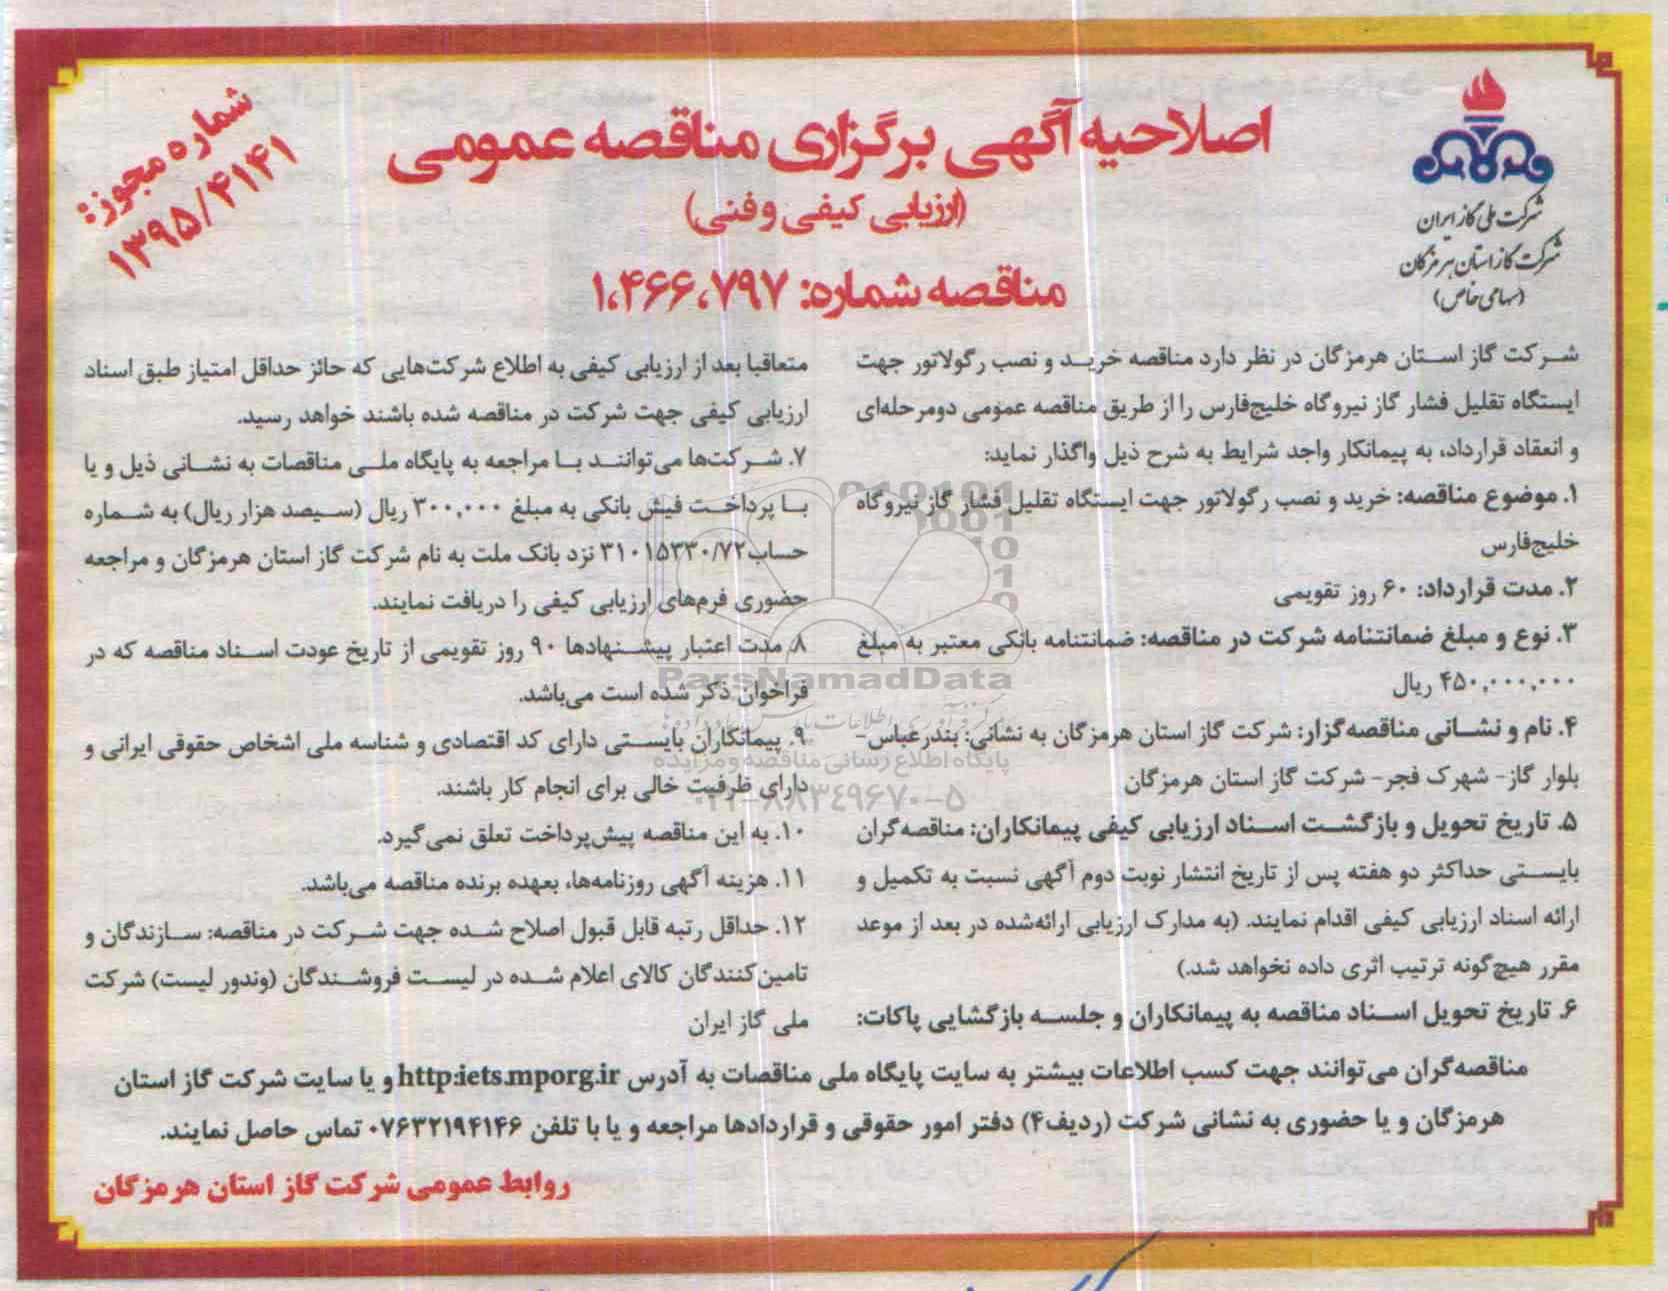 شماره مجوز:
۱۳۹۵/۴۱۴۱
اصلاحیه آگهی برگزاری مناقصه عمومی
(ارزیابی کیفی و فنی)
مناقصه شماره: ۱،۴۶۶،۷۹۷
شرکت ملی گاز ایران
شرکت گاز استان هرمزگان
(سهامی خاص)
شرکت گاز استان هرمزگان در نظر دارد مناقصه خرید و نصب رگولاتور جهت
ایستگاه تقلیل فشار گاز نیروگاه خلیج‌فارس را از طریق مناقصه عمومی دومرحله‌ای
و انعقاد قرارداد، به پیمانکار واجد شرایط به شرح ذیل واگذار نماید:
۱. موضوع مناقصه: خرید و نصب رگولاتور جهت ایستگاه تقلیل فشار گاز نیروگاه
خلیج‌فارس
۲. مدت قرارداد: ۶۰ روز تقویمی
۳. نوع و مبلغ ضمانتنامه شرکت در مناقصه: ضمانتنامه بانکی معتبر به مبلغ
۴۵۰,۰۰۰,۰۰۰ ریال
۴. نام و نشانی مناقصه‌گزار: شرکت گاز استان هرمزگان به نشانی: بندرعباس-
بلوار گاز- شهرک فجر- شرکت گاز استان هرمزگان
۵. تاریخ تحویل و بازگشت اسناد ارزیابی کیفی پیمانکاران: مناقصه‌گران
بایستی حداکثر دو هفته پس از تاریخ انتشار نوبت دوم آگهی نسبت به تکمیل و
ارائه اسناد ارزیابی کیفی اقدام نمایند. (به مدارک ارزیابی ارائه‌شده در بعد از موعد
مقرر هیچ‌گونه ترتیب اثری داده نخواهد شد.)
۶. تاریخ تحویل اسناد مناقصه به پیمانکاران و جلسه بازگشایی پاکات:
متعاقبا بعد از ارزیابی کیفی به اطلاع شرکت‌هایی که حائز حداقل امتیاز طبق اسناد
ارزیابی کیفی جهت شرکت در مناقصه شده باشند خواهد رسید.
۷. شرکت‌ها می‌توانند با مراجعه به پایگاه ملی مناقصات به نشانی ذیل و یا
با پرداخت فیش بانکی به مبلغ ۳۰۰,۰۰۰ ریال (سیصد هزار ریال) به شماره
حساب ۳۱۰۱۵۳۳۰/۷۲ نزد بانک ملت به نام شرکت گاز استان هرمزگان و مراجعه
حضوری فرم‌های ارزیابی کیفی را دریافت نمایند.
۸. مدت اعتبار پیشنهادها ۹۰ روز تقویمی از تاریخ عودت اسناد مناقصه که در
فراخوان ذکر شده است می‌باشد.
۹. پیمانکاران بایستی دارای کد اقتصادی و شناسه ملی اشخاص حقوقی ایرانی و
دارای ظرفیت خالی برای انجام کار باشند.
۱۰. به این مناقصه پیش‌پرداخت تعلق نمی‌گیرد.
۱۱. هزینه آگهی روزنامه‌ها، بعهده برنده مناقصه می‌باشد.
۱۲. حداقل رتبه قابل قبول اصلاح شده جهت شرکت در مناقصه: سازندگان و
تامین‌کنندگان کالای اعلام شده در لیست فروشندگان (وندور لیست) شرکت
ملی گاز ایران
مناقصه‌گران می‌توانند جهت کسب اطلاعات بیشتر به سایت پایگاه ملی مناقصات به آدرس http:iets.mporg.ir و یا سایت شرکت گاز استان
هرمزگان و یا حضوری به نشانی شرکت (ردیف۴) دفتر امور حقوقی و قراردادها مراجعه و یا با تلفن ۰۷۶۳۲۱۹۴۱۴۶ تماس حاصل نمایند.
روابط عمومی شرکت گاز استان هرمزگان
ParsNamadData
پایگاه اطلاع رسانی مناقصه و مزایده
۰۲۱-۸۸۳۴۹۶۷۰-۵